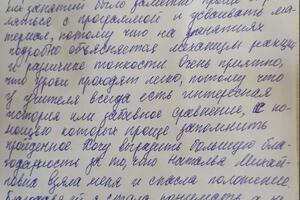 ми занятий было заметно проще
ться с программой и усваивать ма-
териал, потому что на занятиях
подробно объясняется механизм реакций
и различные тонкости. Очень приятно,
что уроки проходят легко, потому что
у учителя всегда есть интересная
история или забавное сравнение, с по-
мощью которых проще запомнить
пройденное. Хочу выразить большую бла-
годарность за то, что Наталья Михай-
ловна взяла меня и спасла положение.
я стала понимать а не